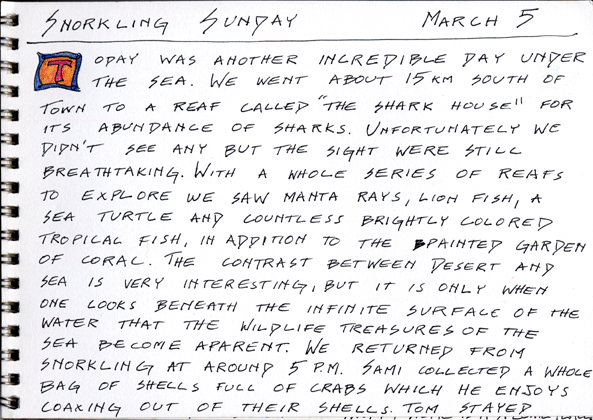 SNORKLING SUNDAY MARCH 5
TODAY WAS ANOTHER INCREDIBLE DAY UNDER
THE SEA. WE WENT ABOUT 15KM SOUTH OF
TOWN TO A REAF CALLED "THE SHARK HOUSE" FOR
ITS ABUNDANCE OF SHARKS. UNFORTUNATELY WE
DIDN'T SEE ANY BUT THE SIGHT WERE STILL
BREATHTAKING. WITH A WHOLE SERIES OF REAFS
TO EXPLORE WE SAW MANTA RAYS, LION FISH, A
SEA TURTLE AND COUNTLESS BRIGHTLY COLORED
TROPICAL FISH, IN ADDITION TO THE PAINTED GARDEN
OF CORAL. THE CONTRAST BETWEEN DESERT AND
SEA IS VERY INTERESTING, BUT IT IS ONLY WHEN
ONE LOOKS BENEATH THE INFINITE SURFACE OF THE
WATER THAT THE WILDLIFE TREASURES OF THE
SEA BECOME APARENT. WE RETURNED FROM
SNORKLING AT AROUND 5 P.M. SAMI COLLECTED A WHOLE
BAG OF SHELLS FULL OF CRABS WHICH HE ENJOYS
COAXING OUT OF THEIR SHELLS. TOM STAYED